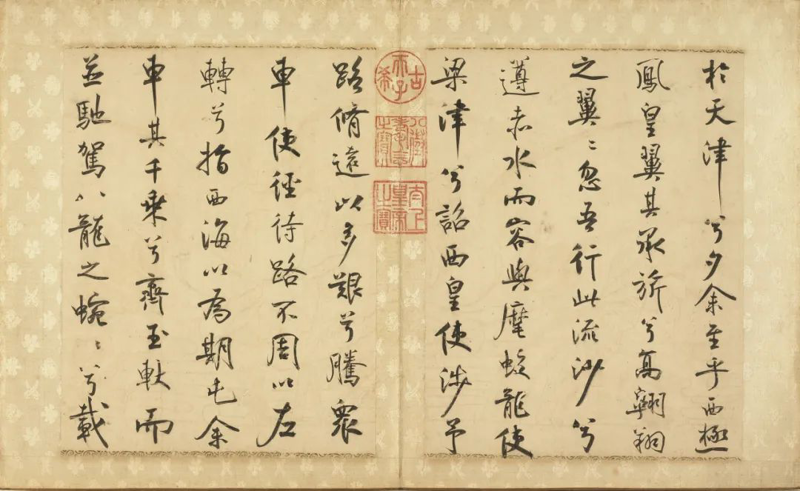 於天津兮夕余至乎西極
鳳皇翼其承旂兮高翱翔
之翼〻忽吾行此流沙兮
遵赤水而容與麾蛟龍使
梁津兮詔西皇使涉予
古希天子
八徵耄念之寶
太上皇帝之寶
路脩遠以多艱兮騰衆
車使徑待路不周以左
轉兮指西海以為期屯余
車其千乘兮齊玉軑而
並馳駕八龍之蜿〻兮載